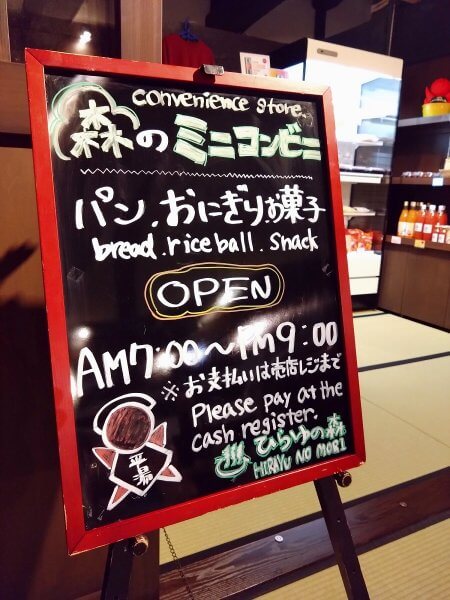 convenience store.
森のミニコンビニ
パン.おにぎりお菓子
bread.rice ball.snack
OPEN
AM7:00〜PM9:00
※お支払いは売店レジまで
Please pay at the
cash register.
ひらゆの森
HIRAYU NO MORI
平湯